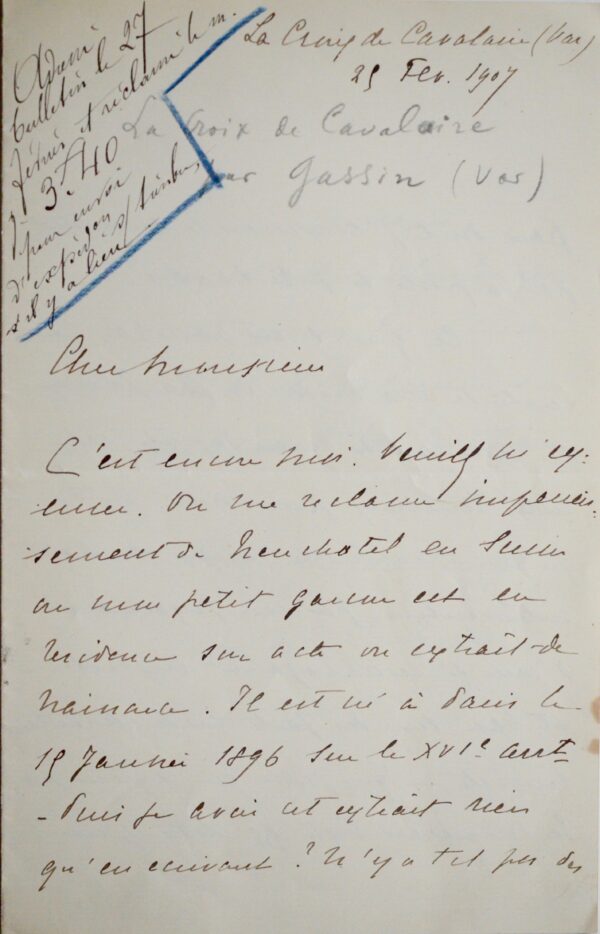 La Croix de Cavalaire (Var)
25 Fev. 1907
La Croix de Cavalaire
par Gassin (Var)
bulletin le 27
février et réclamé le m.
3f.40
pour envoi
d'expédon s/ timbre,
s'il y a lieu
Cher Monsieur
C'est encore moi. Veuillez m'ex-
cuser. On me réclame impérieu-
sement de Neuchatel en Suisse
ou mon petit garcon est en
residence son acte ou extrait de
naissance. Il est né à Paris le
15 Janvier 1896 sur le XVIe arrt
- Puis je avoir cet extrait rien
qu'en ecrivant ? N'y a t il pas des